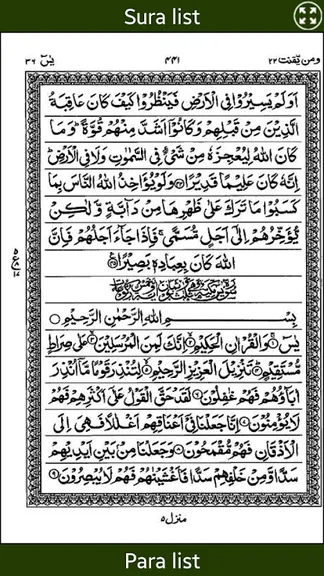 Sura list
ومن یقنت ٢٢ ٤٤١ یٰسٓ ٣٦
اَوَلَمْ يَسِيْرُوْا فِي الْاَرْضِ فَيَنْظُرُوْا كَيْفَ كَانَ عَاقِبَةُ
الَّذِيْنَ مِنْ قَبْلِهِمْ وَكَانُوْۤا اَشَدَّ مِنْهُمْ قُوَّةً ؕ وَمَا
كَانَ اللّٰهُ لِيُعْجِزَهٗ مِنْ شَيْءٍ فِي السَّمٰوٰتِ وَلَا فِي الْاَرْضِ ؕ
اِنَّهٗ كَانَ عَلِيْمًا قَدِيْرًا ۝ وَلَوْ يُؤَاخِذُ اللّٰهُ النَّاسَ بِمَا
كَسَبُوْا مَا تَرَكَ عَلٰى ظَهْرِهَا مِنْ دَآبَّةٍ وَّلٰكِنْ
يُّؤَخِّرُهُمْ اِلٰۤى اَجَلٍ مُّسَمًّى ۚ فَاِذَا جَآءَ اَجَلُهُمْ فَاِنَّ
اللّٰهَ كَانَ بِعِبَادِهٖ بَصِيْرًا ۝
بِسْمِ اللّٰهِ الرَّحْمٰنِ الرَّحِيْمِ ۝
يٰسٓ ۝ وَالْقُرْاٰنِ الْحَكِيْمِ ۝ اِنَّكَ لَمِنَ الْمُرْسَلِيْنَ ۝ عَلٰى صِرَاطٍ
مُّسْتَقِيْمٍ ۝ تَنْزِيْلَ الْعَزِيْزِ الرَّحِيْمِ ۝ لِتُنْذِرَ قَوْمًا مَّاۤ اُنْذِرَ
اٰبَآؤُهُمْ فَهُمْ غٰفِلُوْنَ ۝ لَقَدْ حَقَّ الْقَوْلُ عَلٰۤى اَكْثَرِهِمْ فَهُمْ
لَا يُؤْمِنُوْنَ ۝ اِنَّا جَعَلْنَا فِيْۤ اَعْنَاقِهِمْ اَغْلٰلًا فَهِيَ اِلَى
الْاَذْقَانِ فَهُمْ مُّقْمَحُوْنَ ۝ وَجَعَلْنَا مِنْۢ بَيْنِ اَيْدِيْهِمْ
سَدًّا وَّمِنْ خَلْفِهِمْ سَدًّا فَاَغْشَيْنٰهُمْ فَهُمْ لَا يُبْصِرُوْنَ ۝
منزل ٥
Para list